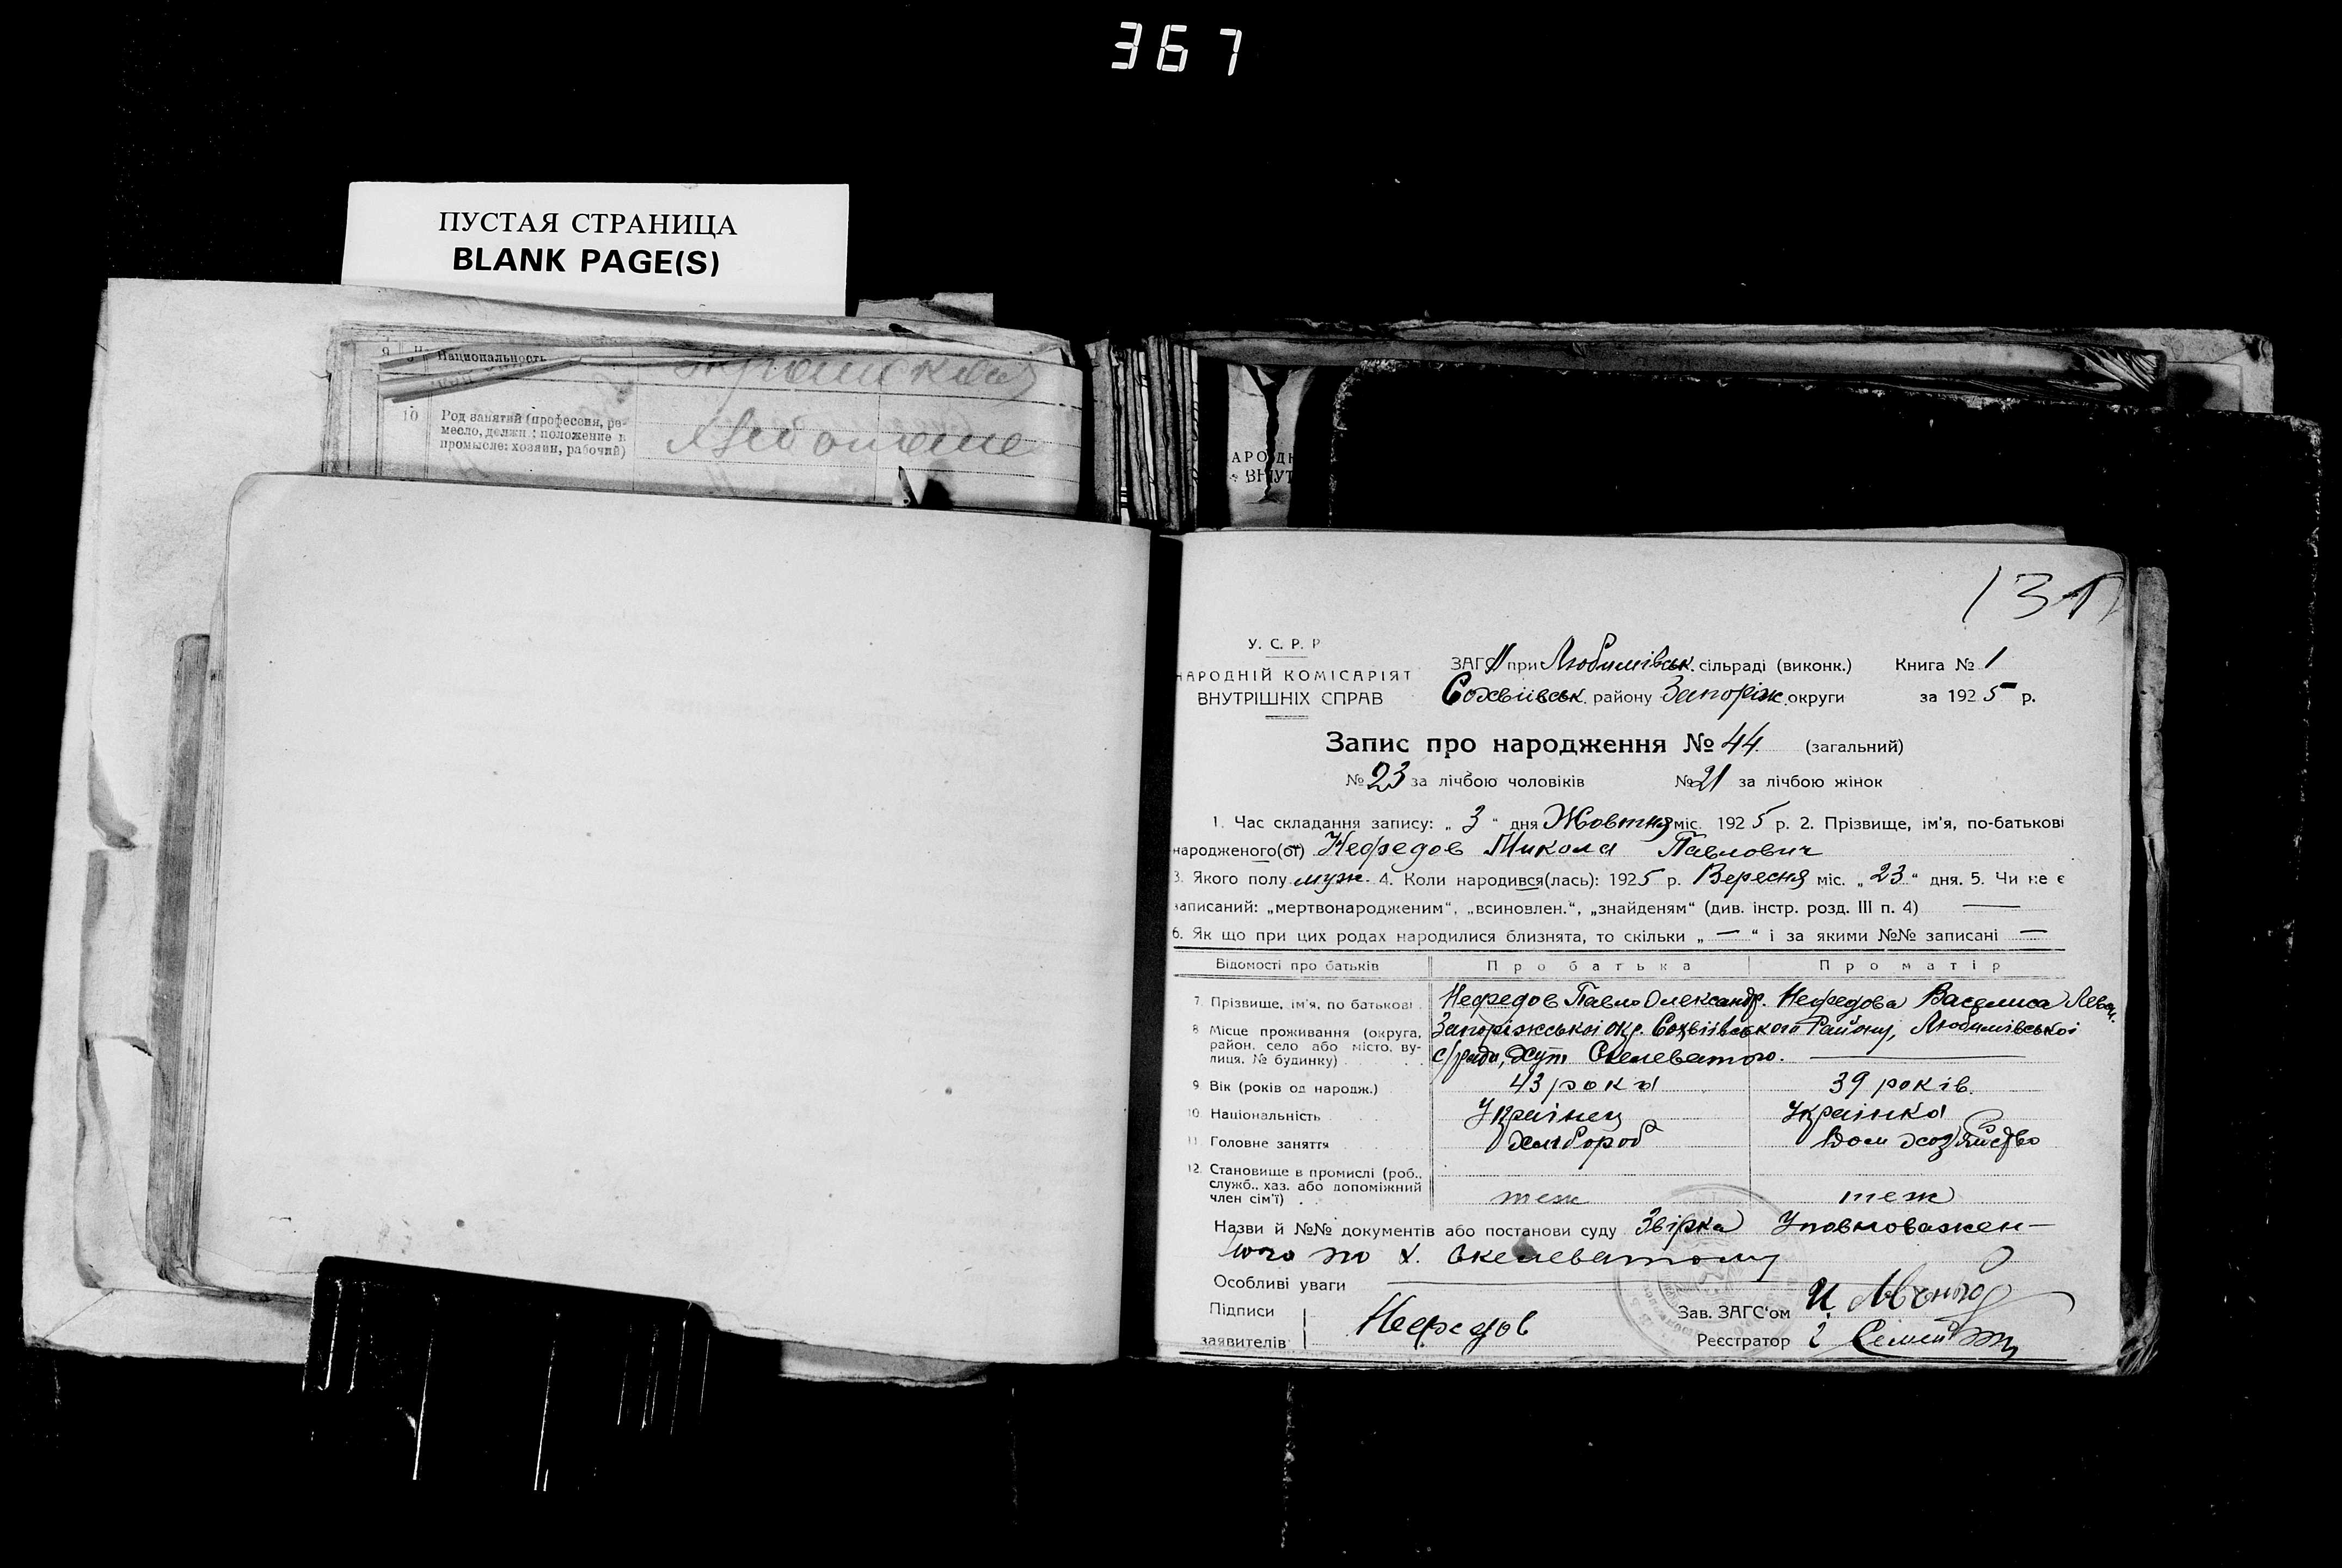 367
ПУСТАЯ СТРАНИЦА
BLANK PAGE(S)
Национальность
10 Род занятий (професеия, ре-
месло, должн.; положение в
промысле: хозяин, рабочий)
АРОДН
ВНУТ
У. С. Р. Р
НАРОДНІЙ КОМІСАРІЯТ
ВНУТРІШНІХ СПРАВ
ЗАГС при Любимівськ. сільраді (виконк.) Книга № 1
Софіївськ. району Запоріж. округи за 1925 р.
Запис про народження № 44 (загальний)
№ 23 за лічбою чоловіків № 21 за лічбою жінок
1. Час складання запису: „ 3 “ дня Жовтня міс. 1925 р. 2. Прізвище, ім'я, по-батькові
народженого(ої) Нефедов Микола Павлович
3. Якого полу муж. 4. Коли народився(лась): 1925 р. Вересня міс. „ 23 “ дня. 5. Чи не є
записаний: „мертвонародженим“, „всиновлен.“, „знайденям“ (див. інстр. розд. III п. 4) —
6. Як що при цих родах народилися близнята, то скільки „ — “ і за якими №№ записані —
Відомості про батьків Про батька Про матір
7. Прізвище, ім'я, по батькові Нефедов Павло Олександр. Нефедова Василиса
8 Місце проживання (округа, Запоріжської окр. Софіївського Району, Любимівської
район, село або місто, ву-
лиця, № будинку) с/ради, хут. Скелеватого. —
9. Вік (років од народж.) 43 роки 39 років.
10. Національність Українец Українка
11. Головне заняття хлібороб Дом хозяйство
12. Становище в промислі (роб.,
служб., хаз. або допоміжний
член сім'ї) теж теж
Назви й №№ документів або постанови суду Звірка Уповноважен-
ного по х. Скелеватому
Особливі уваги —
Підписи Зав. ЗАГС'ом
заявителів Нефедов Реєстратор